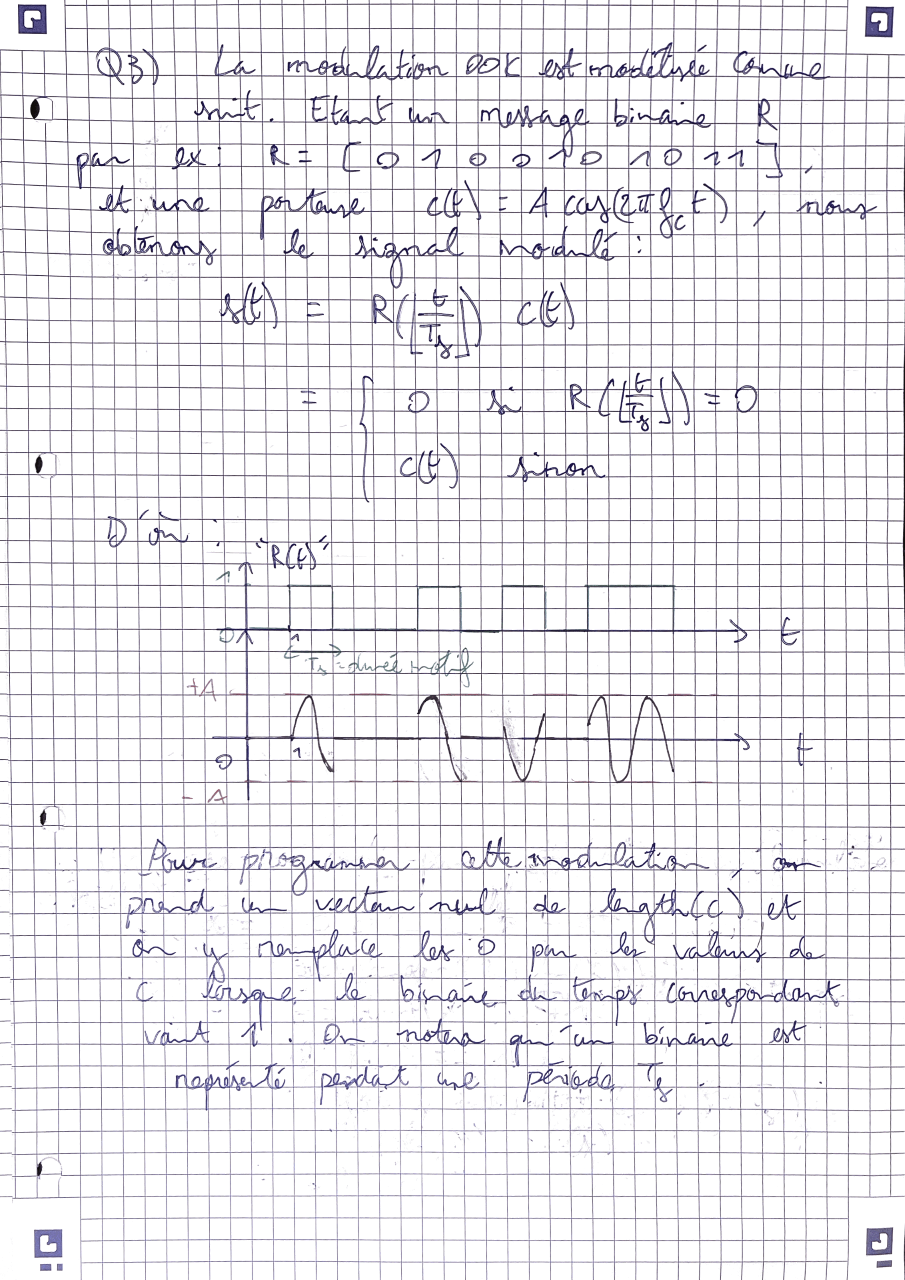 Q3) La modulation OOK est modélisée comme
suit. Etant un message binaire R
par ex : R = [ 0 1 0 0 1 0 1 0 1 1 ] ,
et une porteuse c(t) = A cos(2π f_c t) , nous
obtenons le signal modulé :
s(t) = R(⌊t/T_s⌋) c(t)
= { 0 si R(⌊t/T_s⌋) = 0
c(t) sinon
D'où :
"R(t)"
1
0 1 t
T_s = durée motif
+A
0 1 t
- A
Pour programmer cette modulation , on
prend un vecteur nul de length(c) et
on y remplace les 0 par les valeurs de
c lorsque le binaire du temps correspondant
vaut 1 . On notera qu'un binaire est
représenté pendant une période T_s .